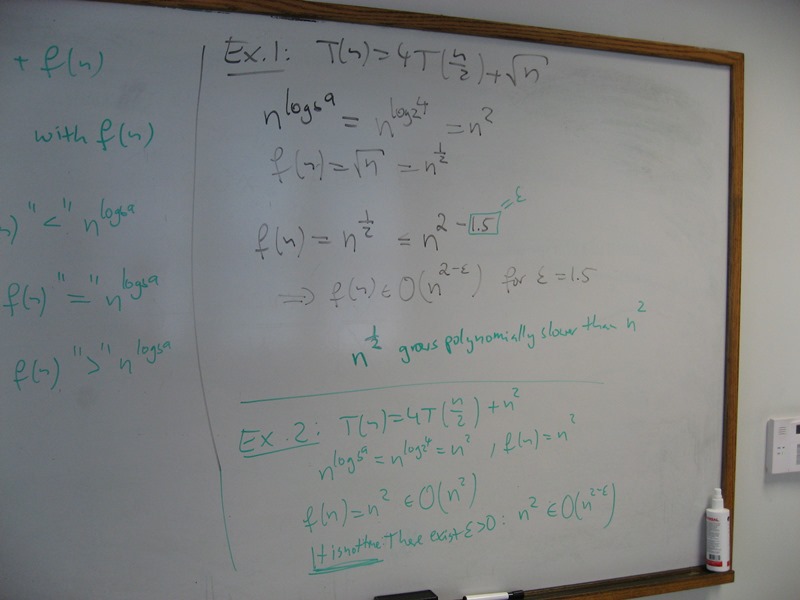 + f(n)
with f(n)
n) "<" n^log_b a
f(n) "=" n^log_b a
f(n) ">" n^log_b a
Ex.1: T(n)=4T(n/2)+√n
n^log_b a = n^log_2 4 = n^2
f(n)=√n = n^1/2
f(n) = n^1/2 = n^2-1.5 = ε
⇒ f(n) ∈ O(n^2-ε) for ε=1.5
n^1/2 grows polynomially slower than n^2
Ex.2: T(n)=4T(n/2)+n^2
n^log_b a = n^log_2 4 = n^2, f(n)=n^2
f(n)=n^2 ∈ O(n^2)
It is not true: There exist ε>0: n^2 ∈ O(n^2-ε)